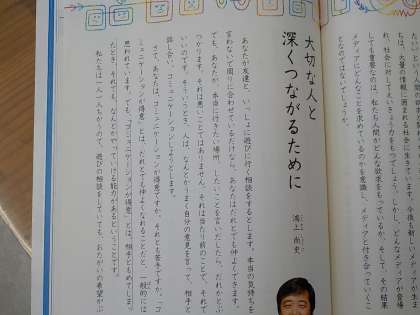 ちは、大量の情報に囲まれる社会に生きています。今後も新しいメディアが
れ、社会に対して　力をもつでしょう。しかし、どんなメディアが登場
しても重要なのは、私たち人間がどんな欲求をもっているか、そして、その結果
メディアにどんなことを求めているのかを意識し、メディアと付き合っていくこ
となのではないでしょうか。
大切な人と
深くつながるために
鴻上 尚史
あなたが友達と、いっしょに遊びに行く相談をするとします。本当の気持ちを
言わないで周りに合わせているだけなら、あなたはだれとでも仲よくできます。
でも、あなたが、本当に行きたい場所、したいことを言いだしたら、だれかとぶ
つかります。それは悪いことではありません。それは当たり前のことで、それで
いいのです。そういうとき、人は、なんとかうまく自分の意見を言って、相手と
話し合い、コミュニケーションしようとします。
さて、あなたは、コミュニケーションが得意ですか。それとも苦手ですか。「コ
ミュニケーションが得意」とは、だれとでも仲よくなれることだと、一般的には
思われています。でも、「コミュニケーションが得意」とは、相手ともめてしまっ
たとき、それでも、なんとかやっていける能力があるということです。
私たちは一人一人ちがうので、遊びの相談をしていても、おたがいの希望がぶ